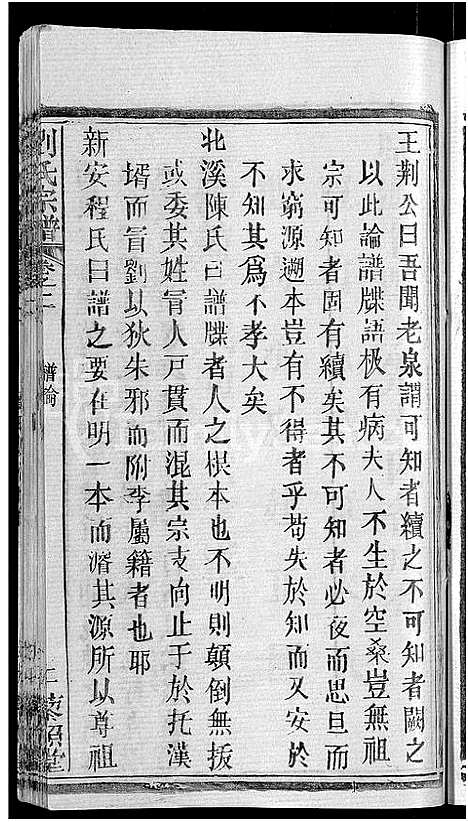 王荆公曰吾聞老泉謂可知者續之不可知者闕之
以此論譜牒語极有病夫人不生於空桑豈無祖
宗可知者固有續矣其不可知者必夜而思旦而
求窮源遡本豈有不得者乎苟失於知而又安於
不知其為不孝大矣
北溪陳氏曰譜牒者人之根本也不明則顛倒無扳
或委其姓冐人戸貫而混其宗支向止于於托漢
壻而冐劉以狄朱邪而附李屬籍者也耶
新安程氏曰譜之要在明一本而濬其源所以尊祖
劉氏宗譜
卷之二
譜論
藜照堂